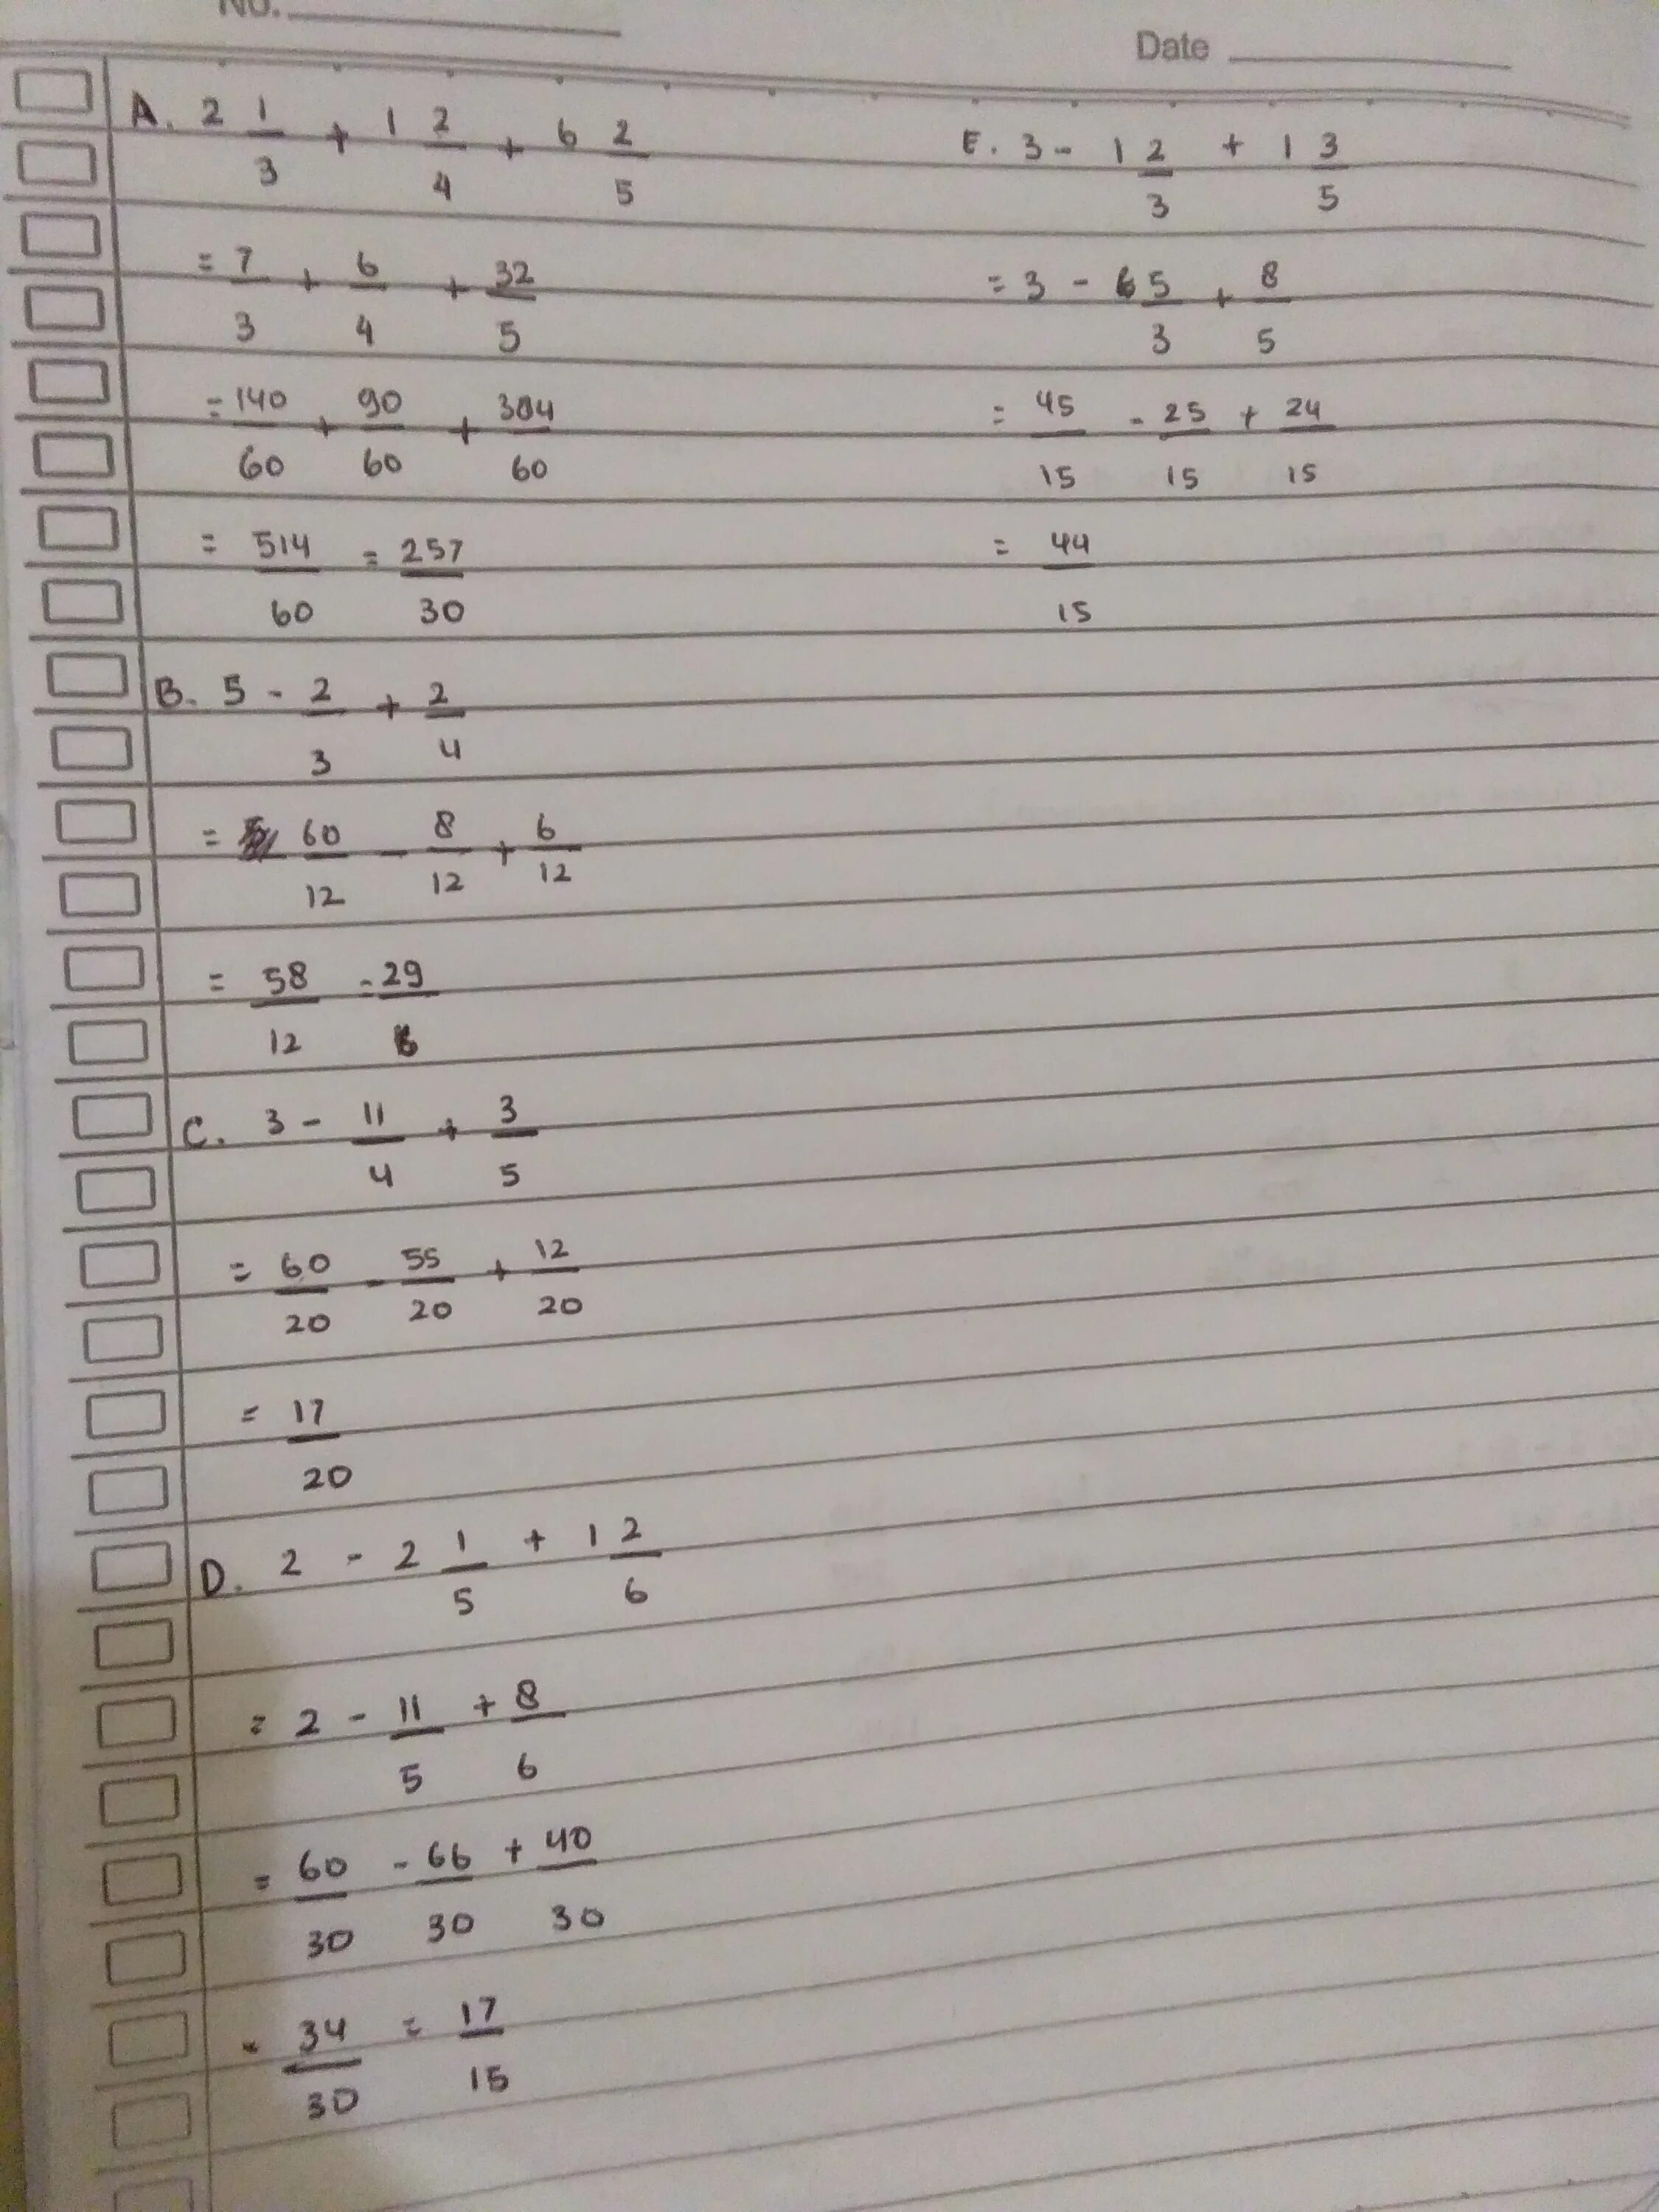 No.
Date
A. 2 1/3 + 1 2/4 + 6 2/5
= 7/3 + 6/4 + 32/5
= 140/60 + 90/60 + 384/60
= 514/60 = 257/30
B. 5 - 2/3 + 2/4
= 60/12 - 8/12 + 6/12
= 58/12 = 29/6
C. 3 - 11/4 + 3/5
= 60/20 - 55/20 + 12/20
= 17/20
D. 2 - 2 1/5 + 1 2/6
= 2 - 11/5 + 8/6
= 60/30 - 66/30 + 40/30
= 34/30 = 17/15
E. 3 - 1 2/3 + 1 3/5
= 3 - 5/3 + 8/5
= 45/15 - 25/15 + 24/15
= 44/15